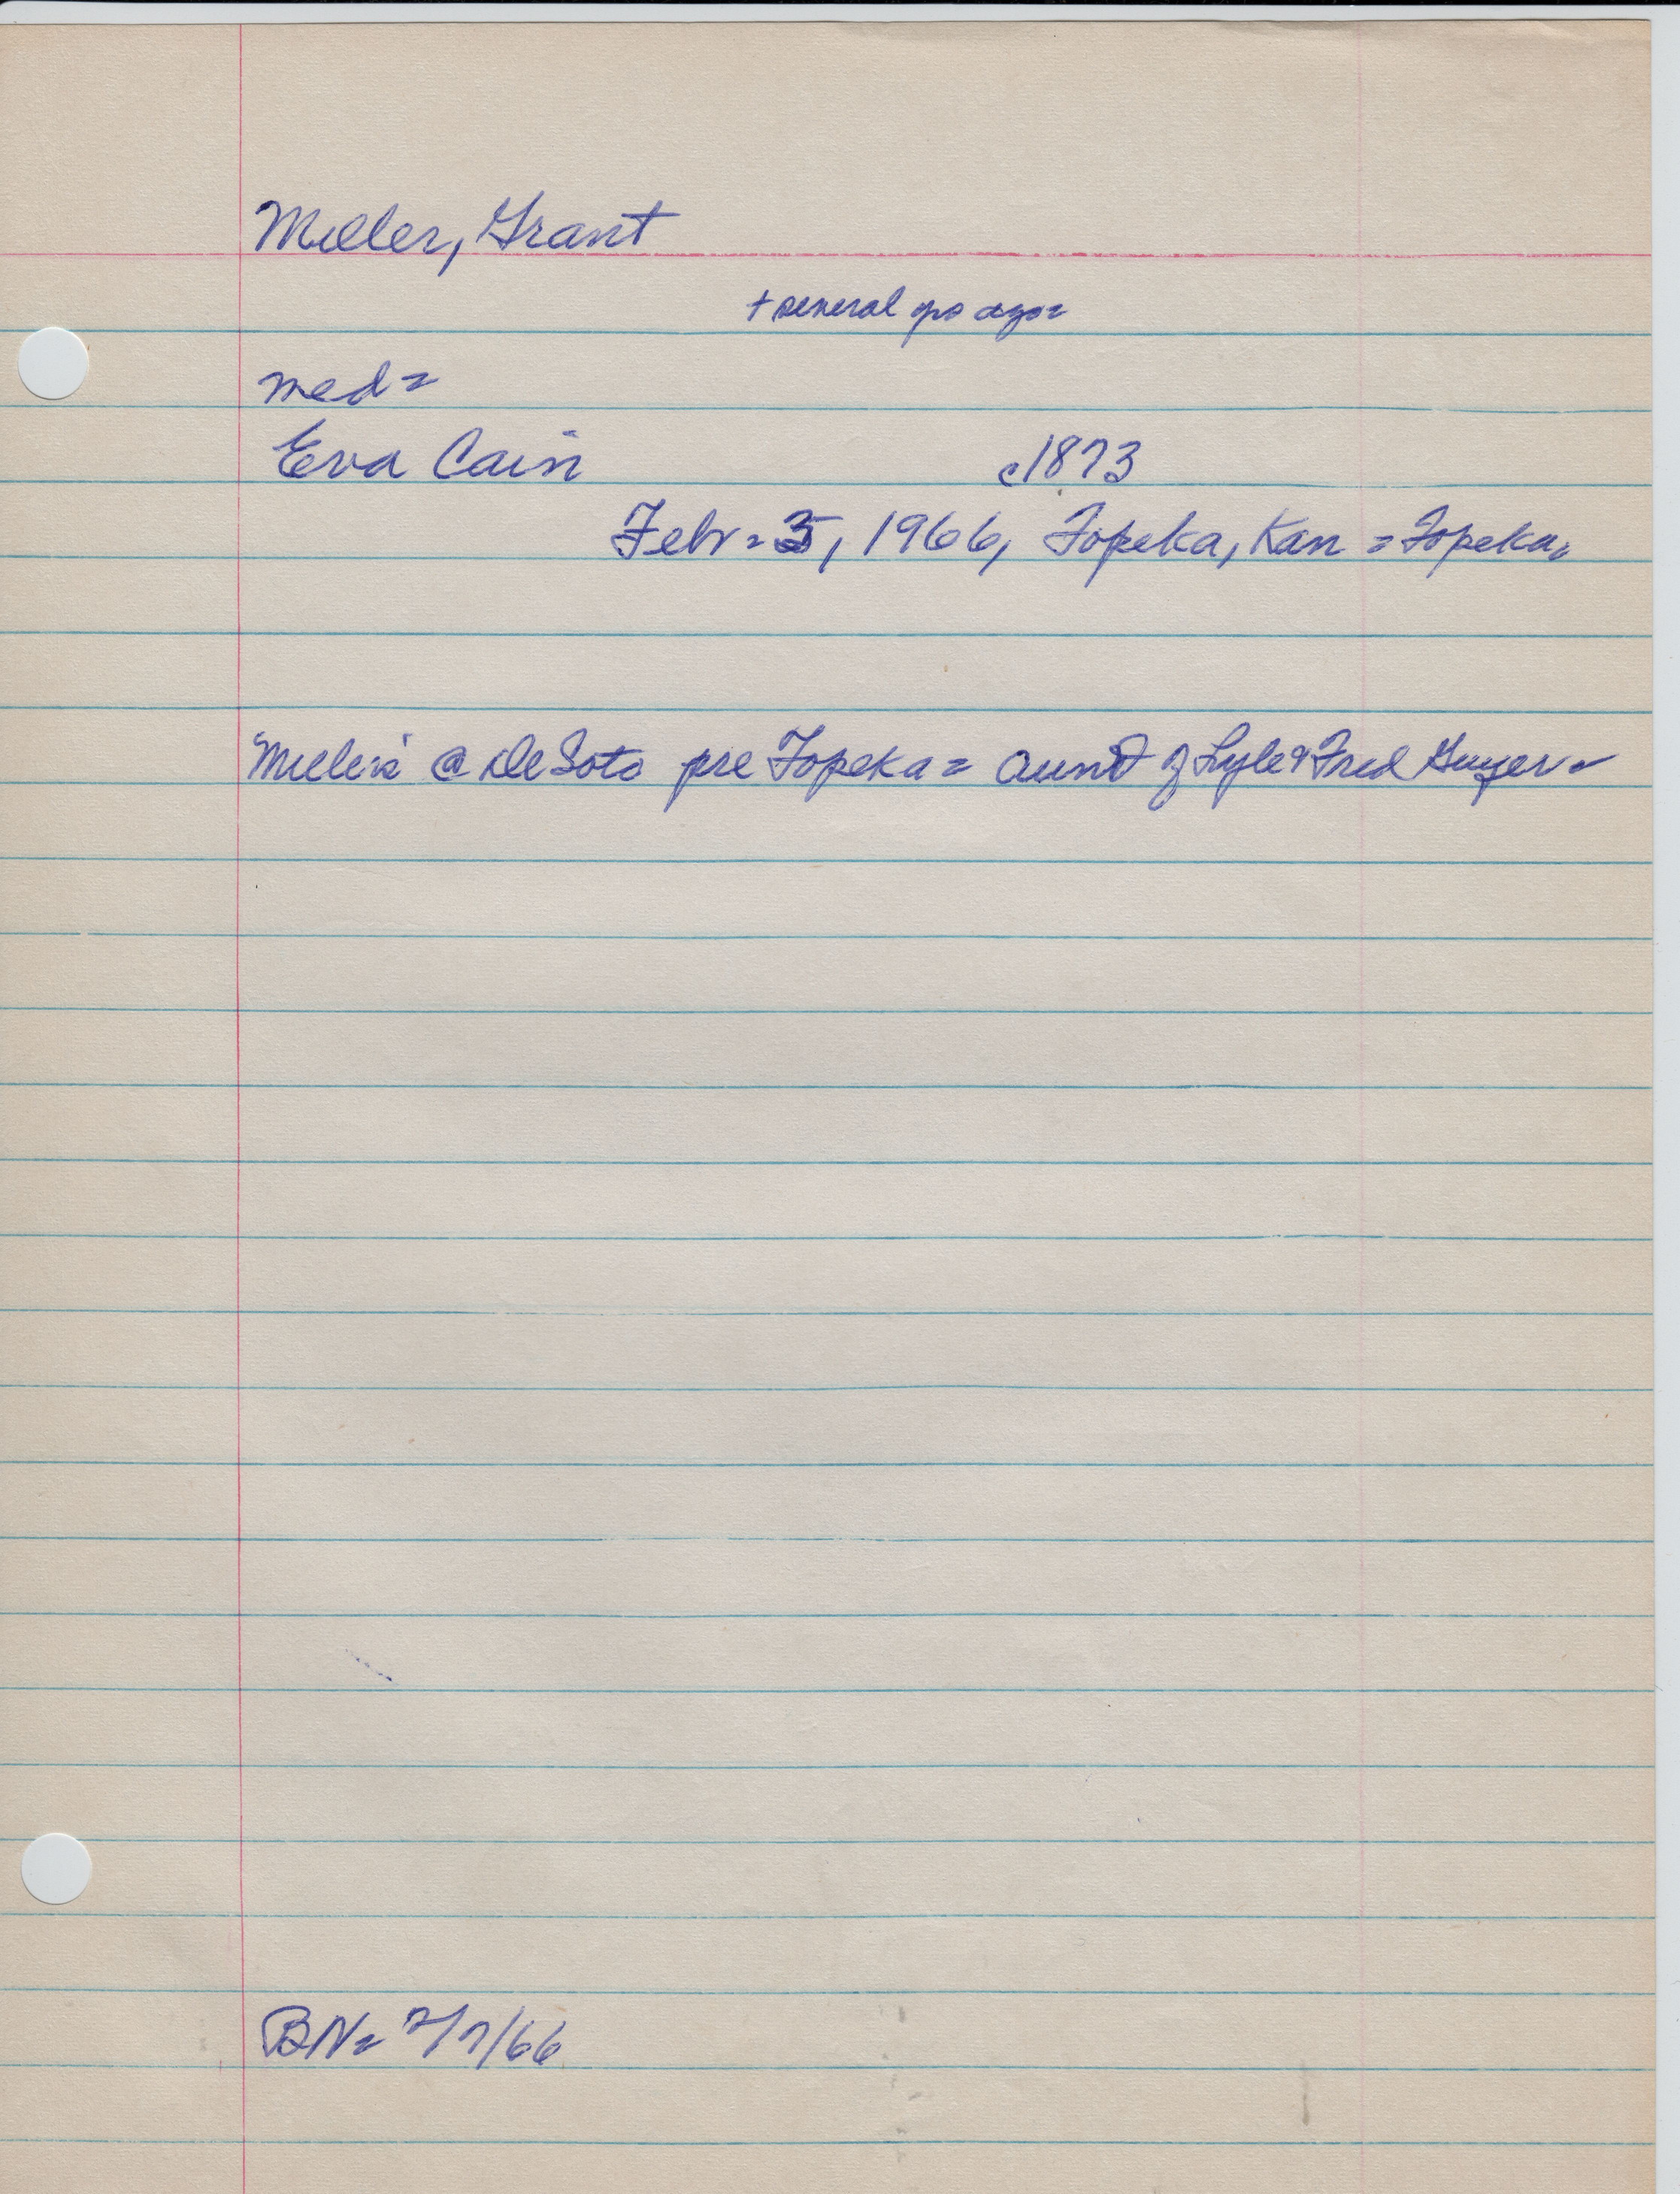 Miller, Grant
+ several yrs ago=
med=
Eva Cain c1873
Febr= 5, 1966, Topeka, Kan = Topeka,
"Millers" @ De Soto pre Topeka = aunt of Lyle & Fred Guyer=
BN= 2/7/66